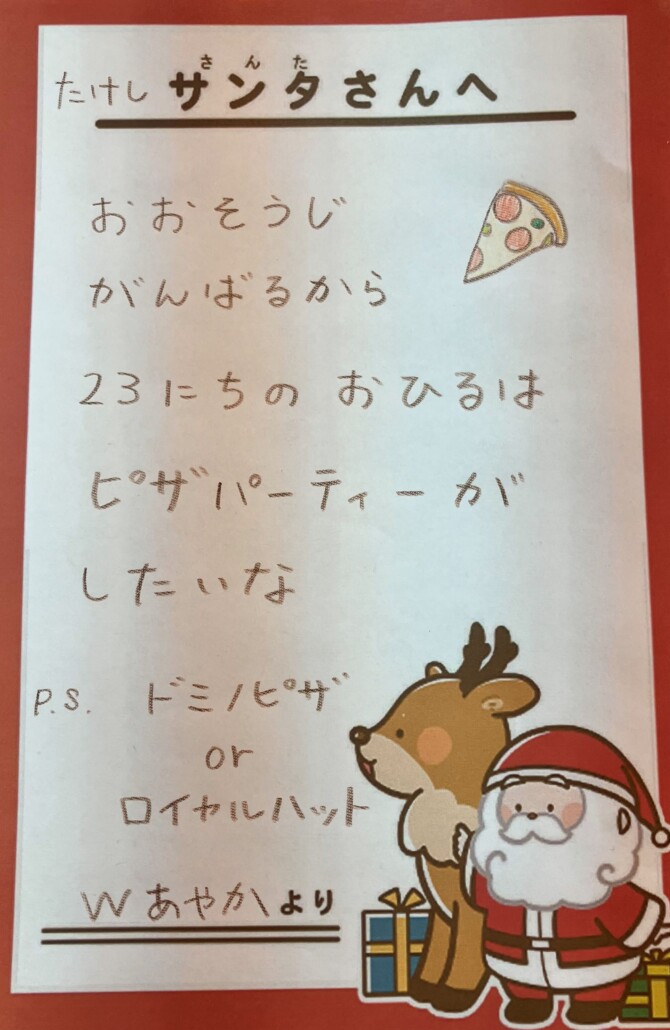 さんた
たけし サンタさんへ
おおそうじ
がんばるから
23にちの おひるは
ピザパーティーが
したいな
P.S. ドミノピザ
or
ロイヤルハット
Wあやかより